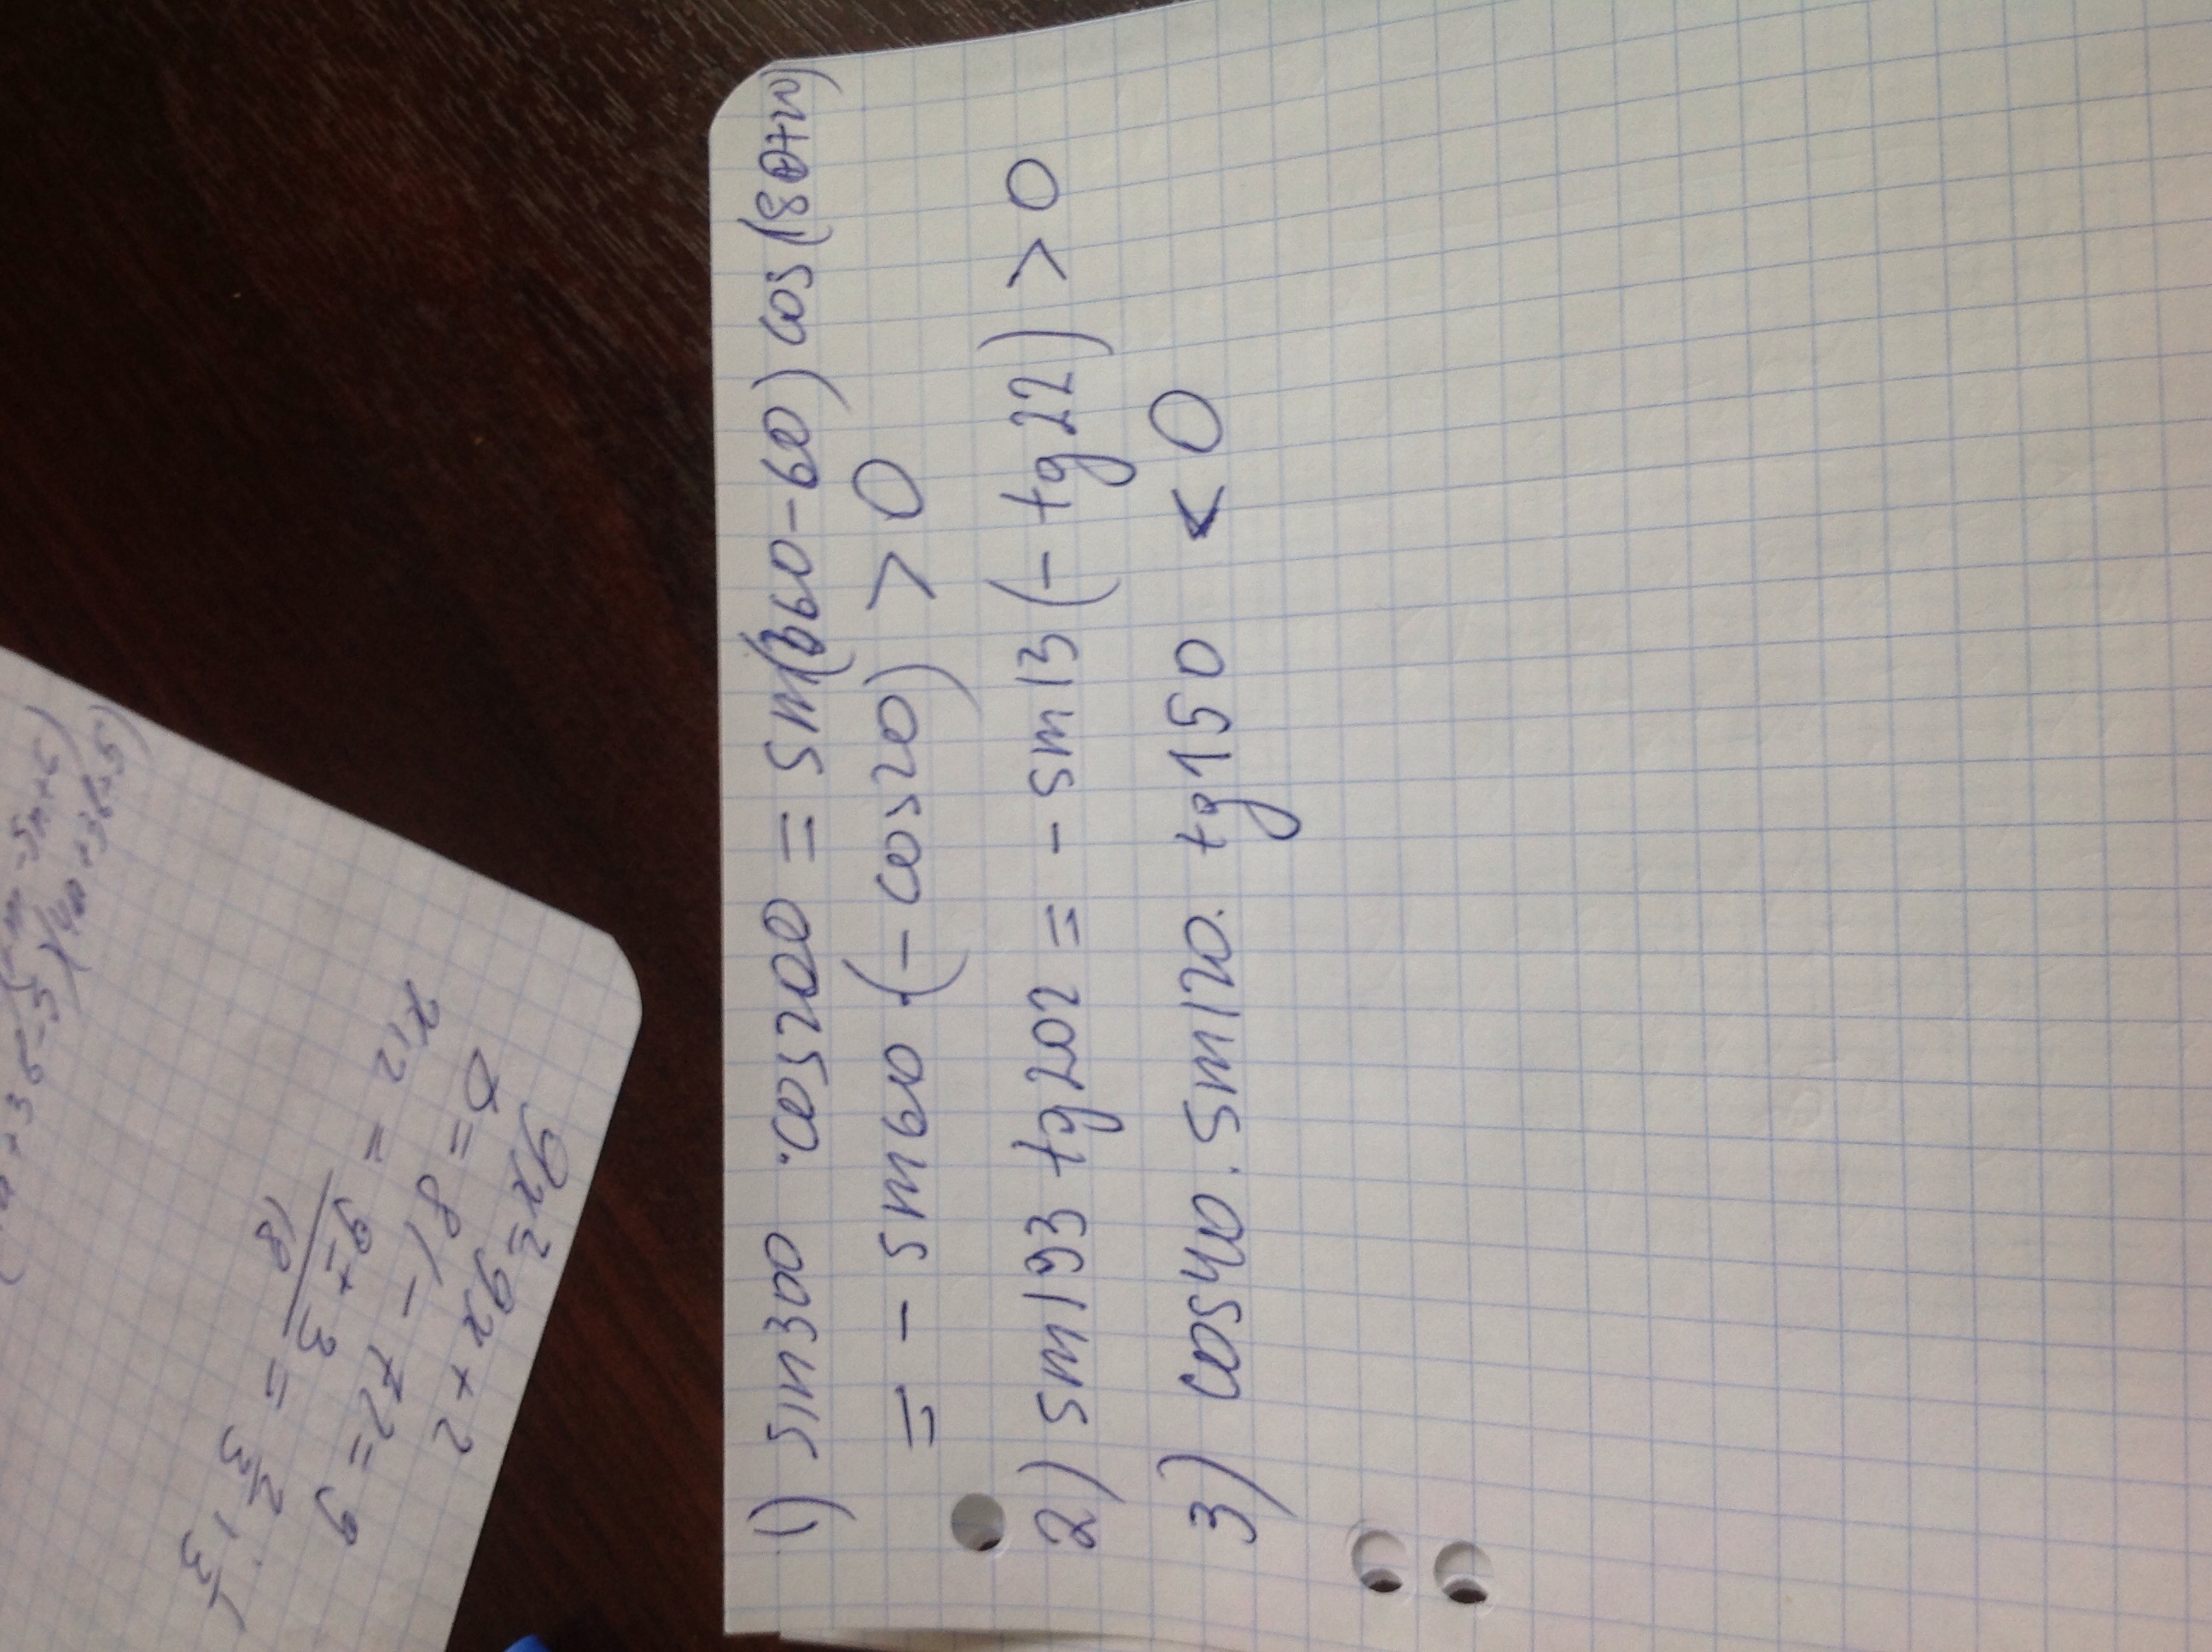 1) sin300 · cos200 = sin(360-60) cos(180+20)
= - sin60 · (- cos20) > 0
2) sin193 tg202 = - sin13 (- tg22) > 0
3) cos40 · sin120 · tg150 < 0
9x² 9x + 2
D = 81 - 72 = 9
x12 = 9 ± 3 / 18 = 2/3 ; 1/3